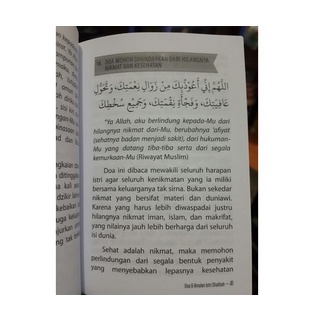 16. DOA MOHON DIHINDARKAN DARI HILANGNYA
NIKMAT DAN KESEHATAN
اللَّهُمَّ إِنِّي أَعُوْذُبِكَ مِنْ زَوَالِ نِعْمَتِكَ، وَتَحَوُّلِ
عَافِيَتِكَ، وَفَجْأَةِ نِقْمَتِكَ، وَجَمِيْعِ سَخَطِكَ
"Ya Allah, aku berlindung kepada-Mu dari
hilangnya nikmat dari-Mu, berubahnya 'afiyat
(sehatnya badan menjadi sakit), dari hukuman-
Mu yang datang tiba-tiba serta dari segala
kemurkaan-Mu (Riwayat Muslim)
Doa ini dibaca mewakili seluruh harapan
istri agar seluruh kenikmatan yang ia miliki
bersama keluarganya tak sirna. Bukan sekedar
nikmat yang bersifat materi dan duniawi.
Karena yang harus lebih diwaspadai justru
hilangnya nikmat iman, islam, dan makrifat,
yang nilainya jauh lebih berharga dari seluruh
isi dunia.
Sehat adalah nikmat, maka memohon
perlindungan dari segala bentuk penyakit
yang menyebabkan lepasnya kesehatan
Doa & Amalan Istri Shalihah